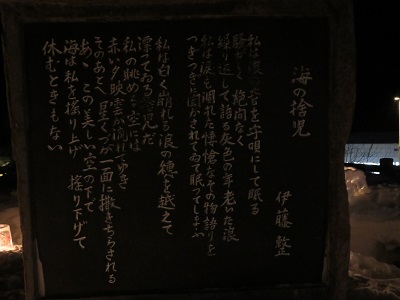 海の捨児
伊藤整
私は浪の音を守唄にして眠る
騒がしく 絶間なく
繰り返して語る灰色の年老いた浪
私は涙も涸れた悽愴なその物語りを
つぎつぎに聞かされて眠ってしまふ
私は白く崩れる浪の穂を越えて
漂っている捨児だ
私の眺める空には
赤い夕映雲が流れてゆき
そのあとへ 星くづが一面に撒きちらされる
あゝ この美しい空の下で
海は私を揺り上げ 揺り下げて
休むときもない